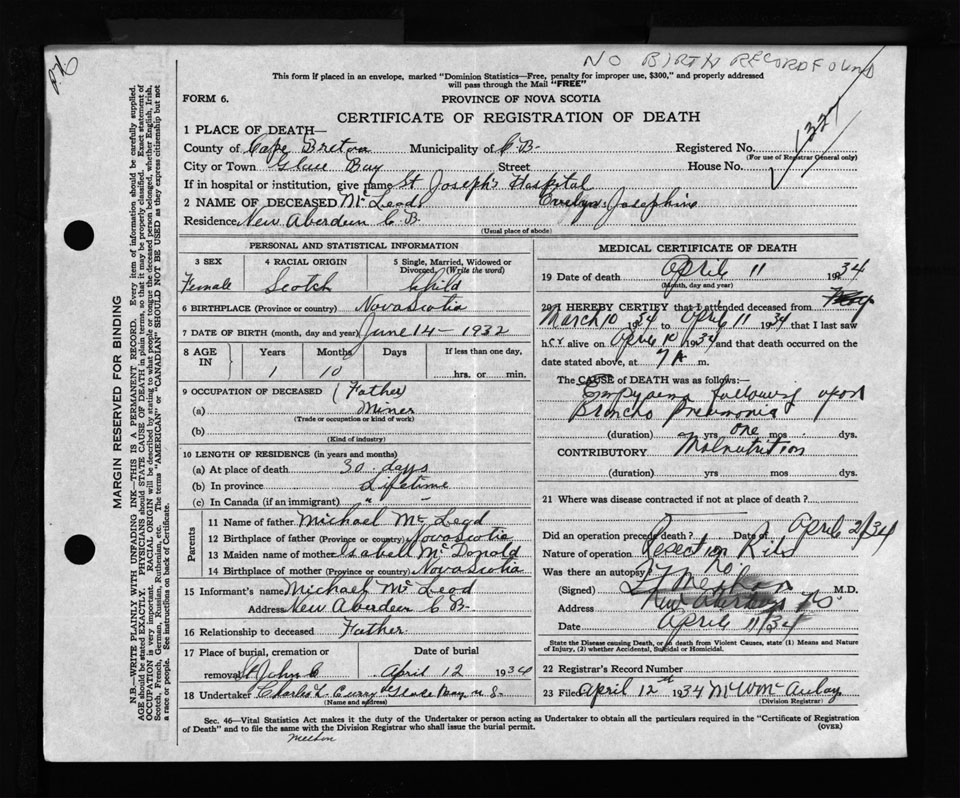 NO BIRTH RECORD FOUND
This form if placed in an envelope, marked "Dominion Statistics—Free, penalty for improper use, $300," and properly addressed
will pass through the Mail "FREE"
FORM 6. PROVINCE OF NOVA SCOTIA
CERTIFICATE OF REGISTRATION OF DEATH
1 PLACE OF DEATH—
County of Cape Breton Municipality of C.B. Registered No.
(For use of Registrar General only)
City or Town Glace Bay Street House No.
If in hospital or institution, give name St Joseph's Hospital
2 NAME OF DECEASED McLeod Evelyn Josephine
Residence New Aberdeen C B.
(Usual place of abode)
PERSONAL AND STATISTICAL INFORMATION
3 SEX 4 RACIAL ORIGIN 5 Single, Married, Widowed or
Divorced (Write the word)
Female Scotch Child
6 BIRTHPLACE (Province or country) Nova Scotia
7 DATE OF BIRTH (month, day and year) June 14 - 1932
8 AGE IN Years Months Days If less than one day,
1 10 hrs. or min.
9 OCCUPATION OF DECEASED (Father)
(a) Miner
(Trade or occupation or kind of work)
(b)
(Kind of industry)
10 LENGTH OF RESIDENCE (in years and months)
(a) At place of death 30 days
(b) In province Lifetime
(c) In Canada (if an immigrant) " -
Parents
11 Name of father Michael McLeod
12 Birthplace of father (Province or country) Nova Scotia
13 Maiden name of mother Isabell McDonald
14 Birthplace of mother (Province or country) Nova Scotia
15 Informant's name Michael McLeod
Address New Aberdeen C B.
16 Relationship to deceased Father
17 Place of burial, cremation or
removal St John's April 12 1934
18 Undertaker Charles L Curry Glace Bay N.S.
(Name and address)
MEDICAL CERTIFICATE OF DEATH
19 Date of death April 11 1934
(Month, day and year)
20 I HEREBY CERTIFY that I attended deceased from
March 10 1934 to April 11 1934 that I last saw
her alive on April 10 1934 and that death occurred on the
date stated above, at 7 A m.
The CAUSE of DEATH was as follows:—
Empyaema following upon
Broncho Pneumonia
(duration) yrs one mos dys.
CONTRIBUTORY Malnutrition
(duration) yrs mos dys.
21 Where was disease contracted if not at place of death?
Did an operation precede death? Date of April 2/34
Nature of operation Resection Ribs
Was there an autopsy? No.
(Signed) M.D.
Address New Aberdeen NS
Date April 11/34
State the Disease causing Death, or in death from Violent Causes, state (1) Means and Nature
of Injury, (2) whether Accidental, Suicidal or Homicidal.
22 Registrar's Record Number
23 Filed April 12th 1934 McAulay
(Division Registrar)
Sec. 46—Vital Statistics Act makes it the duty of the Undertaker or person acting as Undertaker to obtain all the particulars required in the "Certificate of Registration
of Death" and to file the same with the Division Registrar who shall issue the burial permit. (OVER)
MARGIN RESERVED FOR BINDING
N.B.—WRITE PLAINLY WITH UNFADING INK—THIS IS A PERMANENT RECORD. Every item of information should be carefully supplied.
AGE should be stated EXACTLY. PHYSICIANS should STATE CAUSE OF DEATH in plain terms, so that it may be properly classified. Exact statement of
OCCUPATION is very important. RACIAL ORIGIN will be described by stating to what people or tongue the deceased person belonged, whether English, Irish,
Scotch, French, German, Russian, Ruthenian, etc. The terms "AMERICAN" or "CANADIAN" SHOULD NOT BE USED as they express citizenship but not
a race or people. See instructions on back of Certificate.